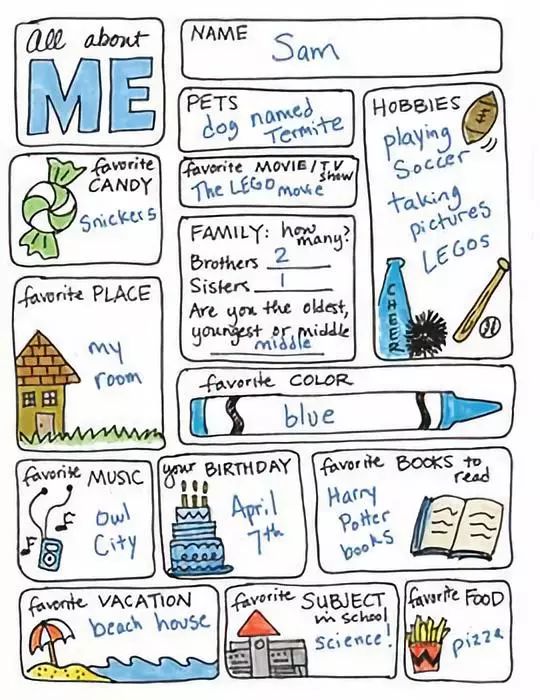 All about
ME
NAME
Sam
PETS
dog named
Termite
HOBBIES
playing
Soccer
taking
pictures
LEGOs
CHEER
favorite
CANDY
Snickers
favorite MOVIE/TV
show
The LEGO movie
FAMILY: how
many?
Brothers 2
Sisters 1
Are you the oldest,
youngest or middle
middle
favorite PLACE
my
room
favorite COLOR
blue
favorite MUSIC
Owl
City
your BIRTHDAY
April
7th
favorite BOOKS to
read
Harry
Potter
books
favorite VACATION
beach house
favorite SUBJECT
in school
science!
favorite FOOD
pizza